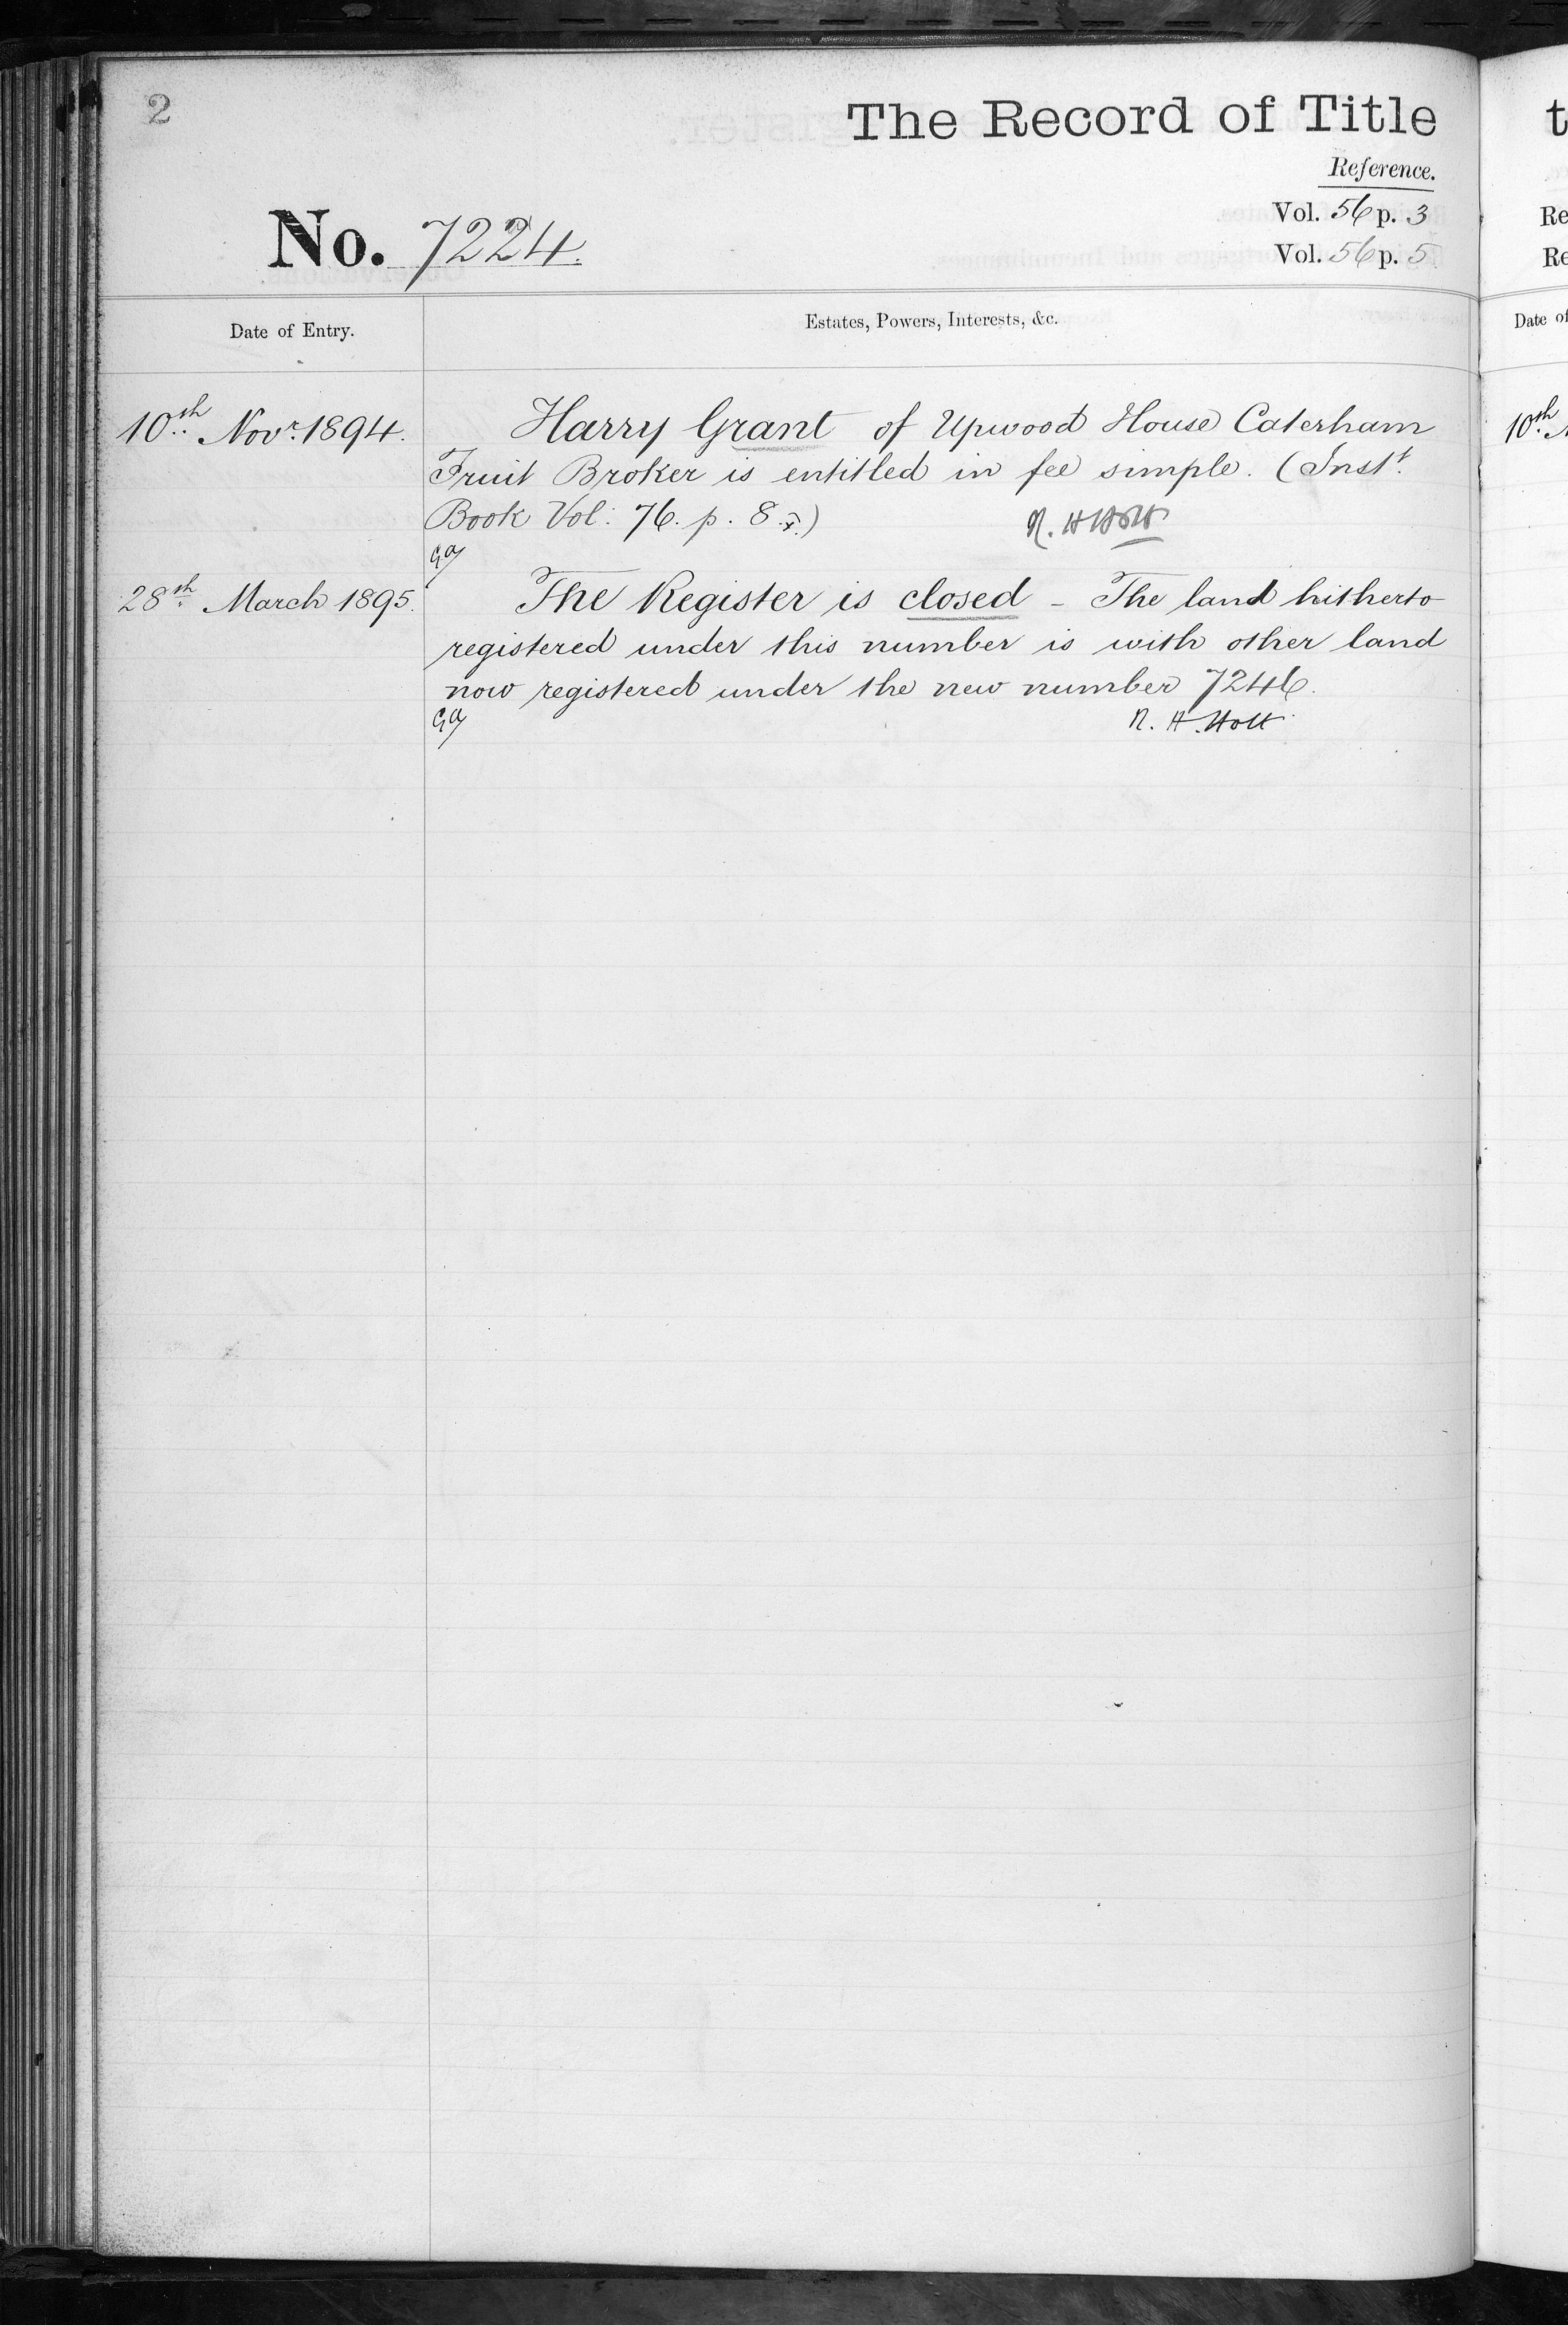 2
The Record of Title
Reference.
Vol. 56 p. 3
No. 7224.
Vol. 56 p. 5
Date of Entry.
Estates, Powers, Interests, &c.
10th Novr. 1894.
Harry Grant of Upwood House Caterham
Fruit Broker is entitled in fee simple. (Inst.
Book Vol: 76. p. 8.x.)
N. H Holt
28th March 1895.
The Register is closed - The land hitherto
registered under this number is with other land
now registered under the new number 7246.
N. H. Holt
t
Re
Re
Date of
10th